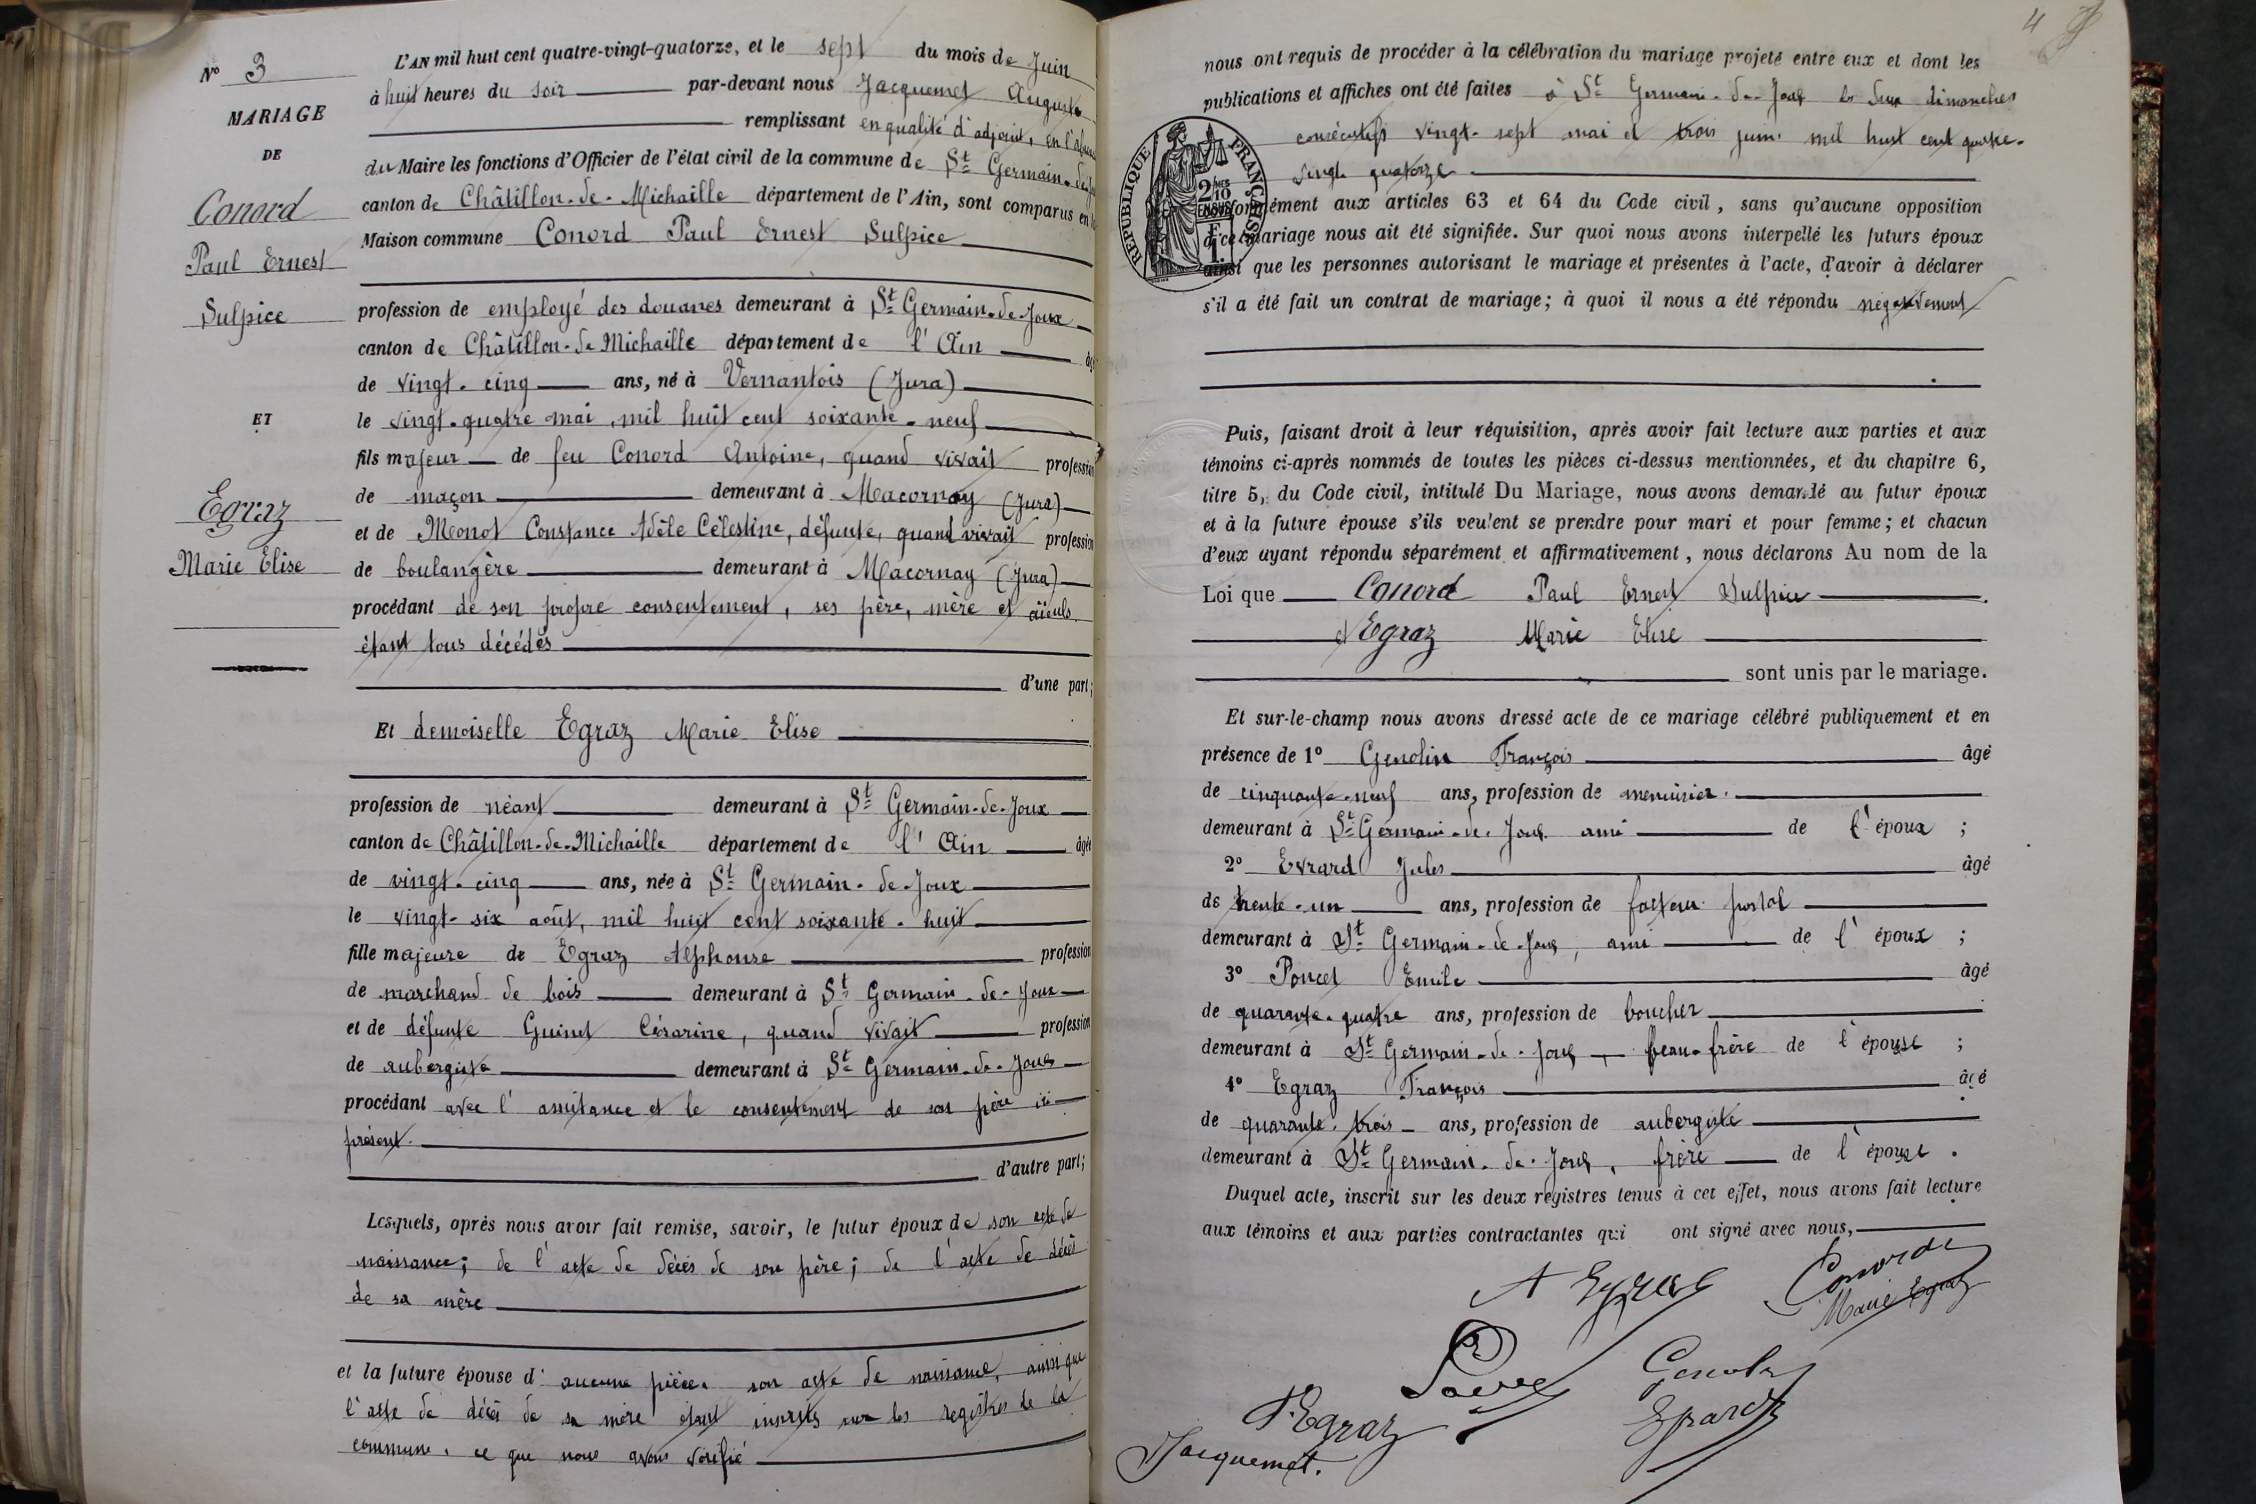 N° 3
MARIAGE
DE
Conord
Paul Ernest
Sulpice
ET
Egraz
Marie Elise
L'AN mil huit cent quatre-vingt-quatorze, et le sept du mois de Juin
à huit heures du soir par-devant nous Jacquemet Auguste
remplissant en qualité d'adjoint, en l'absence
du Maire les fonctions d'Officier de l'état civil de la commune de St Germain-de-Joux
canton de Châtillon-de-Michaille département de l'Ain, sont comparus en la
Maison commune Conord Paul Ernest Sulpice
profession de employé des douanes demeurant à St Germain-de-Joux
canton de Châtillon-de-Michaille département de l'Ain âgé
de vingt-cinq ans, né à Vernantois (Jura)
le vingt-quatre mai, mil huit cent soixante-neuf
fils majeur de feu Conord Antoine, quand vivait profession
de maçon demeurant à Macornay (Jura)
et de Monot Constance Adèle Célestine, défunte, quand vivait profession
de boulangère demeurant à Macornay (Jura)
procédant de son propre consentement, ses père, mère et aïeuls
étant tous décédés
d'une part;
Et demoiselle Egraz Marie Elise
profession de néant demeurant à St Germain-de-Joux
canton de Châtillon-de-Michaille département de l'Ain âgée
de vingt-cinq ans, née à St Germain-de-Joux
le vingt-six août, mil huit cent soixante-huit
fille majeure de Egraz Alphonse profession
de marchand de bois demeurant à St Germain-de-Joux
et de défunte Guinet Césarine, quand vivait profession
de aubergiste demeurant à St Germain-de-Joux
procédant avec l'assistance et le consentement de son père ici
présent.
d'autre part;
Lesquels, après nous avoir fait remise, savoir, le futur époux de son acte de
naissance; de l'acte de décès de son père; de l'acte de décès
de sa mère
et la future épouse d'aucune pièce, son acte de naissance, ainsi que
l'acte de décès de sa mère étant inscrits sur les registres de la
commune, ce que nous avons vérifié
4
nous ont requis de procéder à la célébration du mariage projeté entre eux et dont les
publications et affiches ont été faites à St Germain-de-Joux les deux dimanches
consécutifs vingt-sept mai et trois juin mil huit cent quatre-
vingt quatorze
RÉPUBLIQUE FRANÇAISE
2/10 EN SUS
1 F.
conformément aux articles 63 et 64 du Code civil, sans qu'aucune opposition
à ce mariage nous ait été signifiée. Sur quoi nous avons interpellé les futurs époux
ainsi que les personnes autorisant le mariage et présentes à l'acte, d'avoir à déclarer
s'il a été fait un contrat de mariage; à quoi il nous a été répondu négativement
Puis, faisant droit à leur réquisition, après avoir fait lecture aux parties et aux
témoins ci-après nommés de toutes les pièces ci-dessus mentionnées, et du chapitre 6,
titre 5, du Code civil, intitulé Du Mariage, nous avons demandé au futur époux
et à la future épouse s'ils veulent se prendre pour mari et pour femme; et chacun
d'eux ayant répondu séparément et affirmativement, nous déclarons Au nom de la
Loi que Conord Paul Ernest Sulpice
et Egraz Marie Elise
sont unis par le mariage.
Et sur-le-champ nous avons dressé acte de ce mariage célébré publiquement et en
présence de 1° Genolin François âgé
de cinquante-neuf ans, profession de menuisier.
demeurant à St Germain-de-Joux ami de l'époux;
2° Evrard Jules âgé
de trente-un ans, profession de facteur postal
demeurant à St Germain-de-Joux, ami de l'époux;
3° Poncet Emile âgé
de quarante-quatre ans, profession de boucher
demeurant à St Germain-de-Joux, beau-frère de l'épouse;
4° Egraz François âgé
de quarante-trois ans, profession de aubergiste
demeurant à St Germain-de-Joux, frère de l'épouse.
Duquel acte, inscrit sur les deux registres tenus à cet effet, nous avons fait lecture
aux témoins et aux parties contractantes qui ont signé avec nous,
A Egraz Conord
Marie Egraz
Genolin
F. Egraz
Jacquemet.